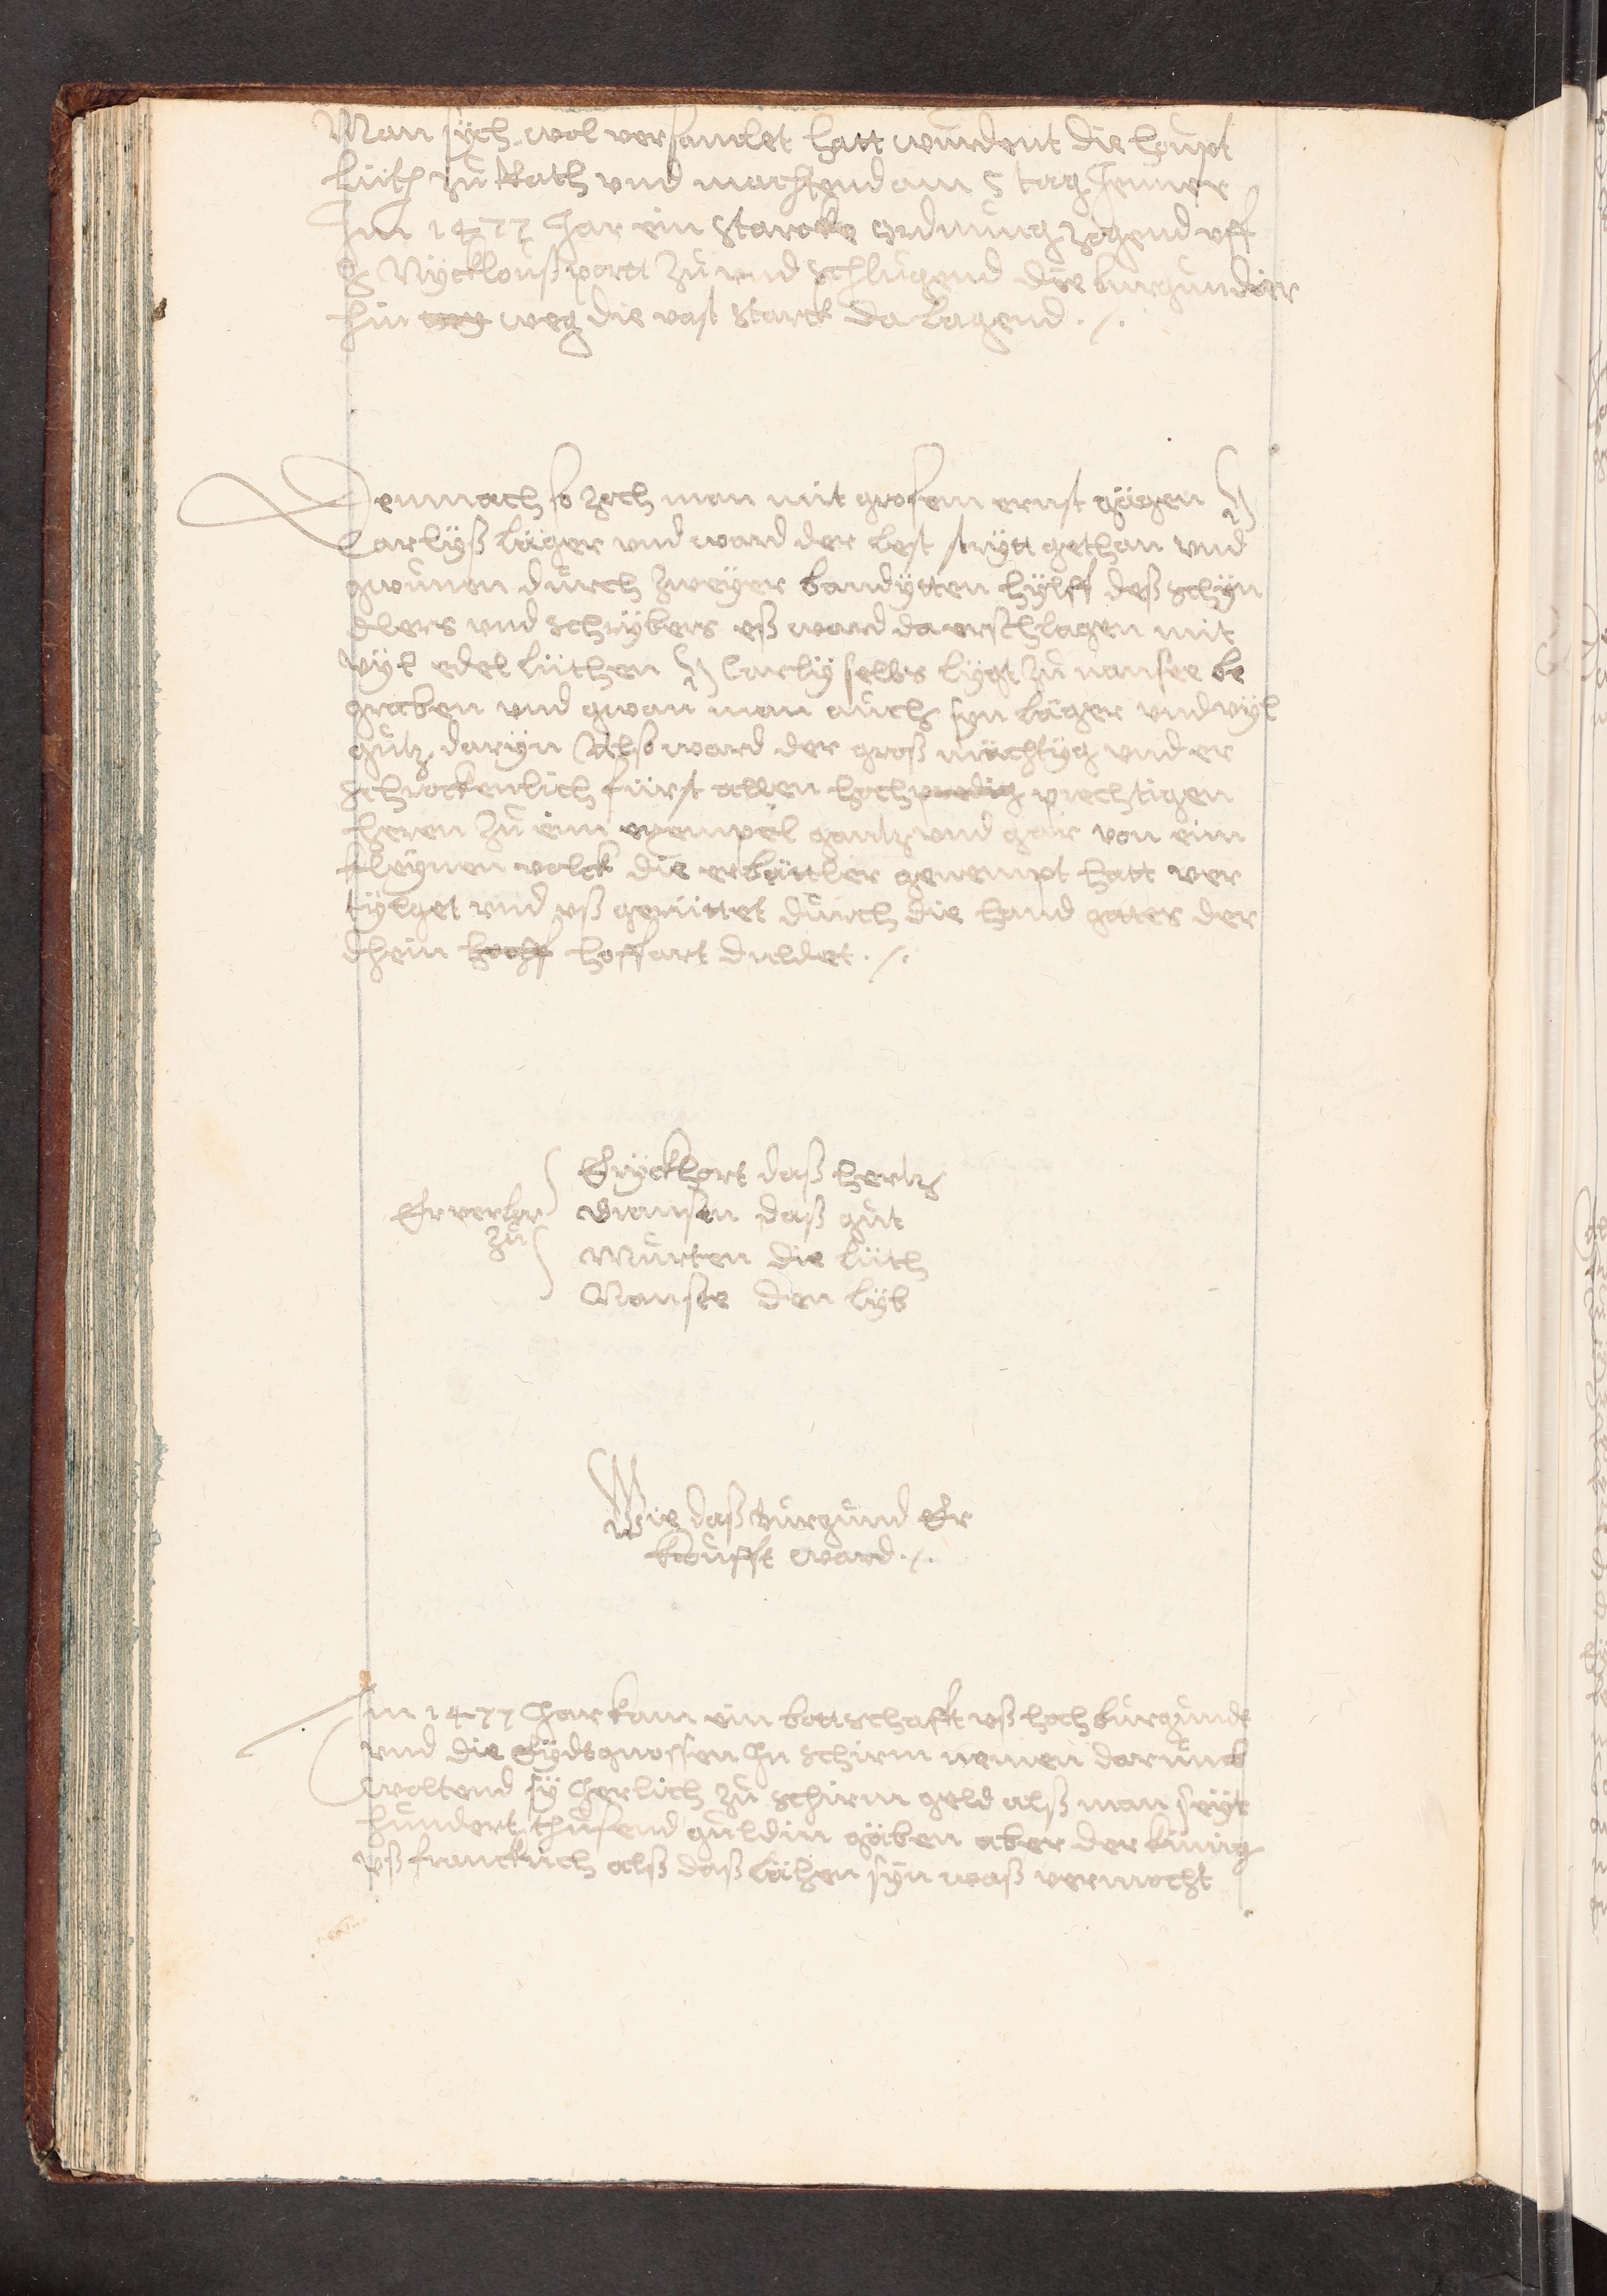 Man sych wol versamlet hatt wurdent die houpt
lüth zů Rath vnd machtend am 5 tag Jenner
Im 1477 Jar ein starcke ordnung zogend vff
S Nycklous portt zů vnd schlůgend die burgundier
hin weg die vast starck da lagend ./.
Demnach so zoch man mit grosem ernst gägen H
Carlyß läger vnd ward der lest strytt gethan vnd
gwunen durch zweyer bandytten hylff deß schyn
dlers vnd schrybers eß ward da erschlagen mit
vyl edel lüthen H Carly selbs lygt zů nansee be
graben vnd gwan man auch syn läger vnd vyl
gůtz daryn Also ward der groß mächtyg vnd er
schrockenlich fürst allen hoch prechtigen
heren zů eim exempel gantz vnd gar von eim
kleynen volck die er büttler genempt hatt ver
tylget vnd vß gerüttet durch die hand gottes der
khein hoffart duldet ./.
Er verlor
zů
Eryckhort daß hertz
Gransen daß gůt
Murten die lüth
Nanse den lyb
Wie daß burgund Er
koufft ward ./.
Im 1477 Jar kam ein bottschafft vß hoch burgunde
vnd die Eydtgnossen In schirm nemen darumb
woltend sy Jerlich zů schirm geld alß man seyt
hundert thusend guldin gäben aber der küng
vß franckrich alß daß lähen syn waß vermocht